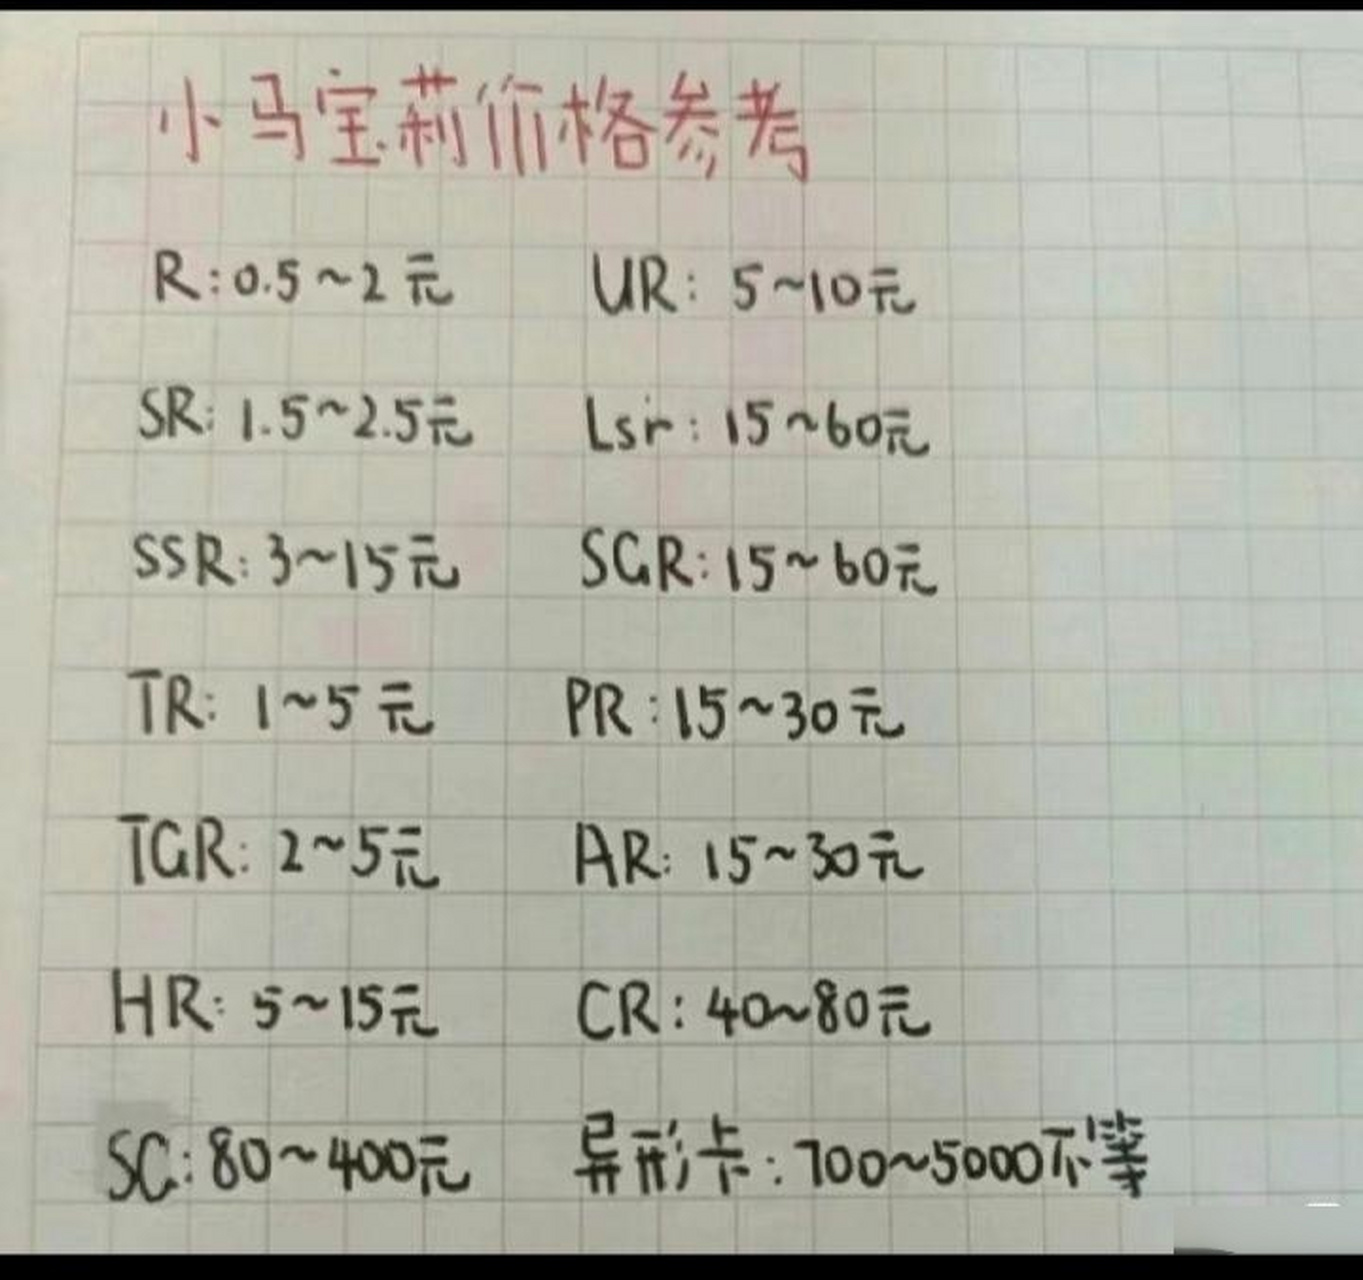 小马宝莉价格参考
R:0.5~2元 UR: 5~10元
SR: 1.5~2.5元 Lsr: 15~60元
SSR: 3~15元 SGR:15~60元
TR: 1~5元 PR:15~30元
TGR: 2~5元 AR: 15~30元
HR: 5~15元 CR: 40~80元
SC:80~400元 异形卡:700~5000不等